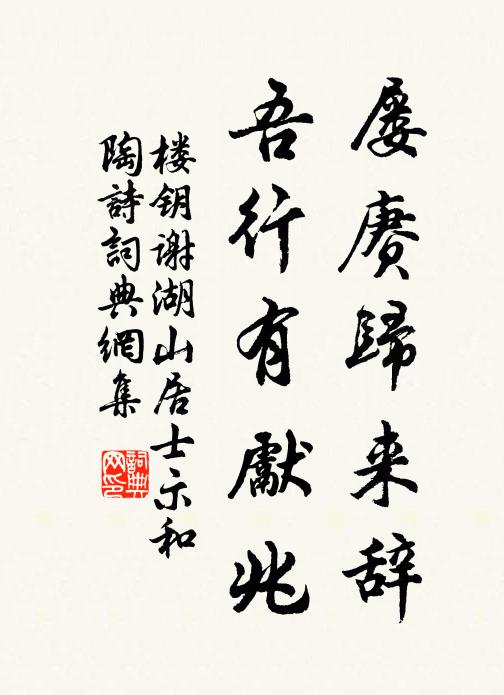 屡赓歸来辞
吾行有獻兆
楼钥谢湖山居士示和
陶詩詞典網集
詞典网印